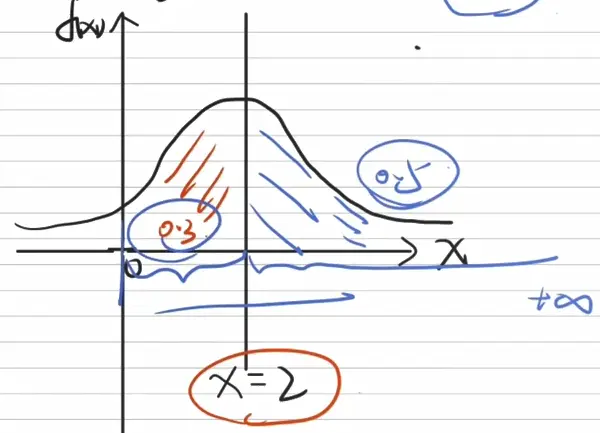 f(x)
0.5
0.3
0
x
+∞
x=2